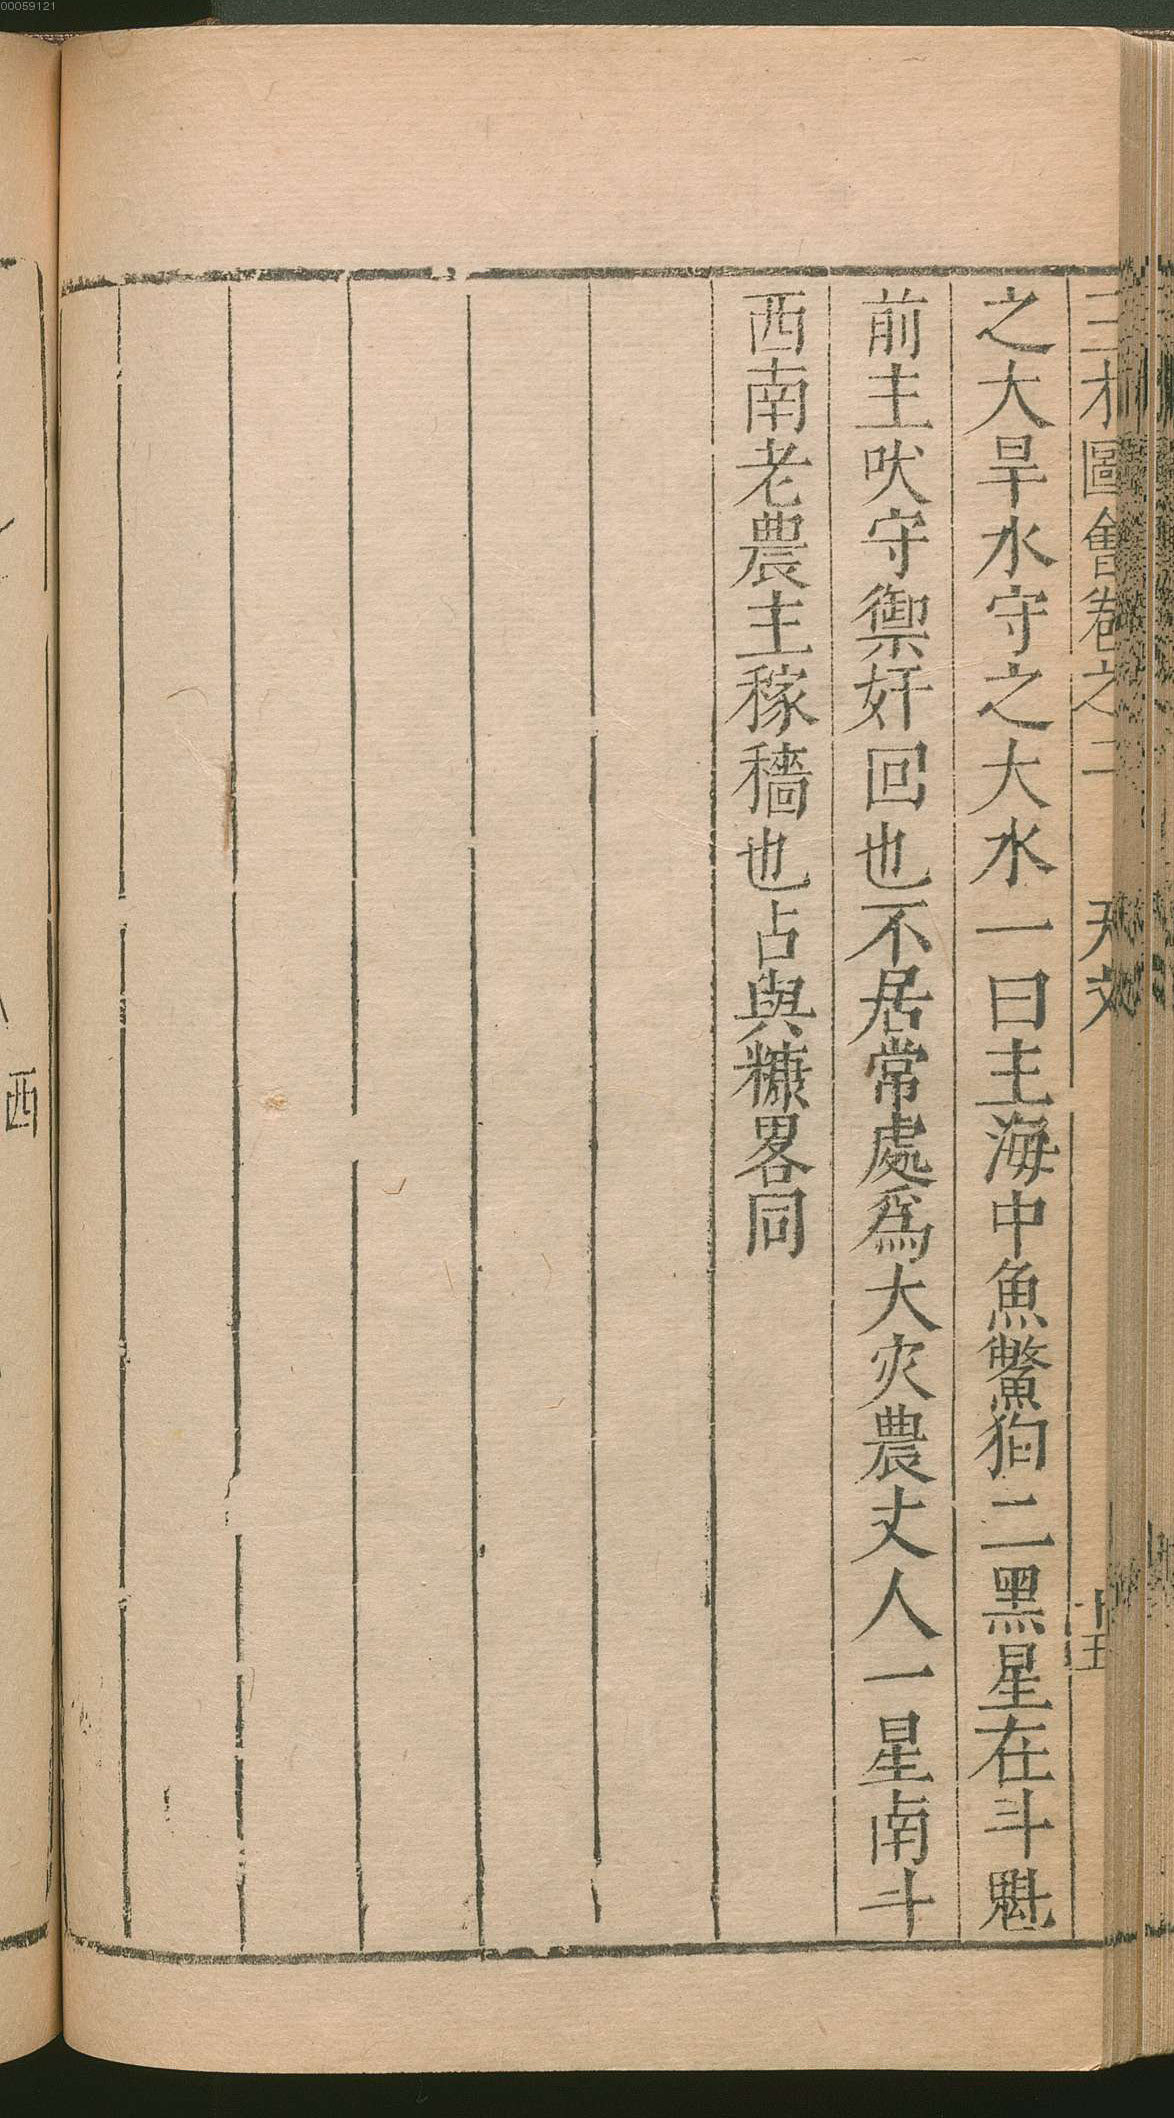 00059121
三才圖會卷之二 天文 十五
之大旱水守之大水一曰主海中魚鱉狗二黑星在斗魁
前主吠守禦奸回也不居常處爲大灾農丈人一星南斗
西南老農主稼穡也占與糠畧同
西